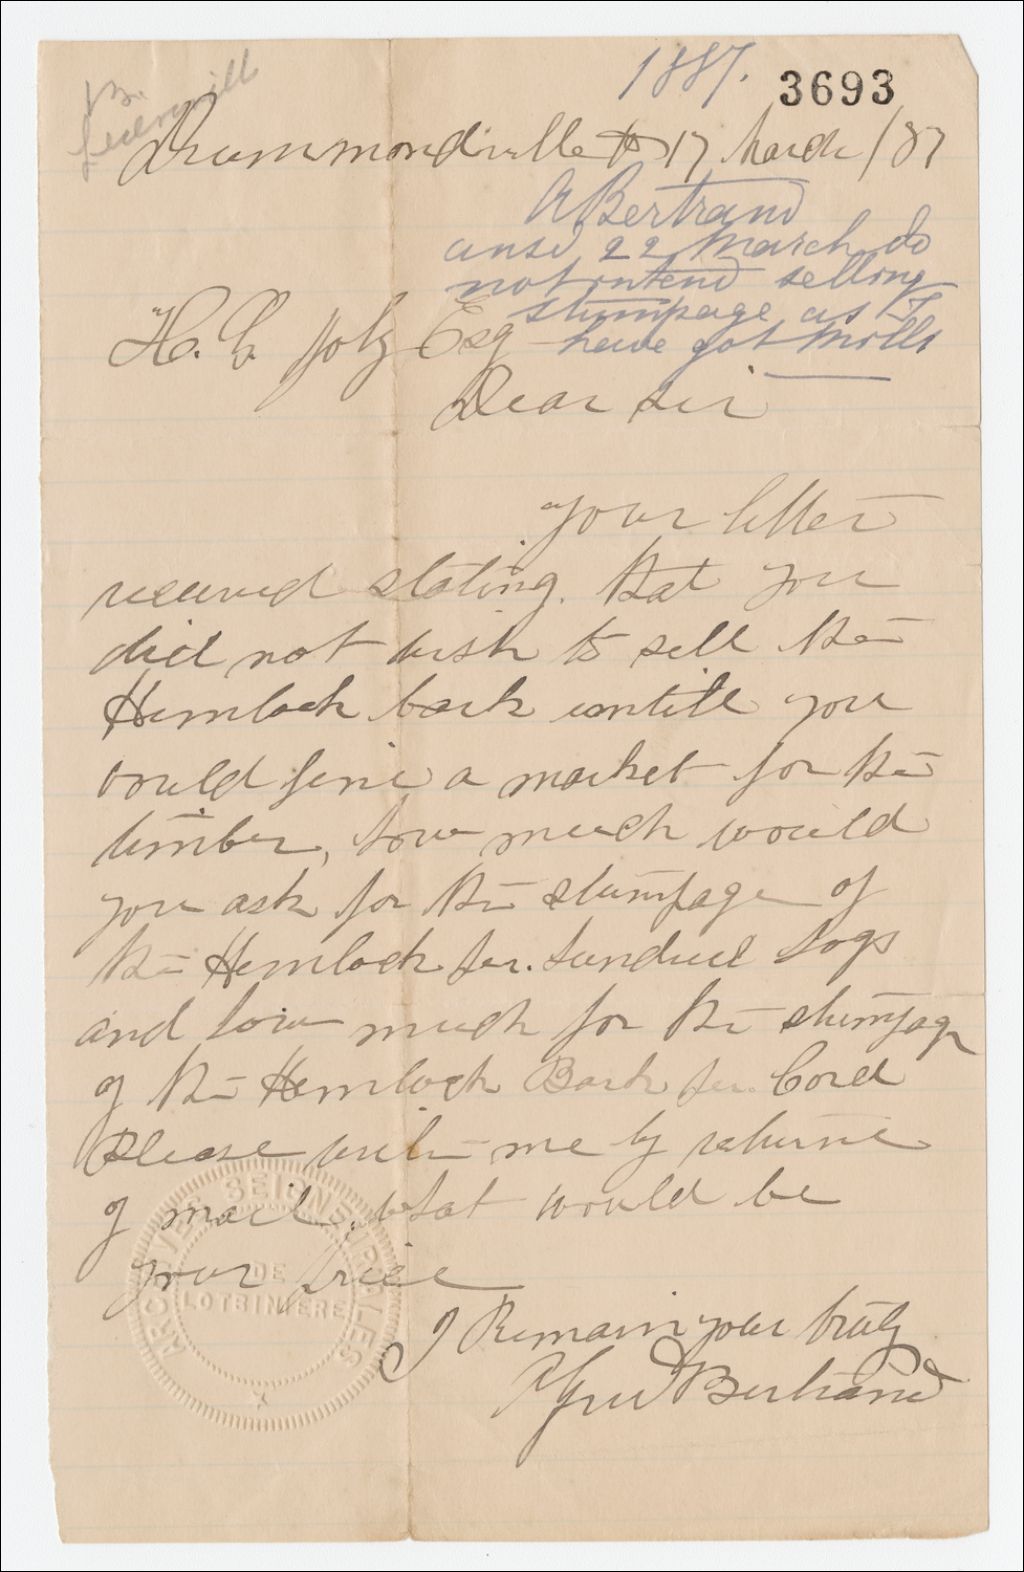 1887.
3693
B.
Drummondville 17 March /87
A Bertrand
ansd 22 March do
not intend selling
stumpage as I
have got Mills
H. G. Joly Esq
Dear Sir
your letter
received stating. that you
did not wish to sell the
Hemlock bark untill you
could fine a market for the
timber, how much would
you ask for the stumpage of
the Hemlock per. hundred logs
and how much for the stumpage
of the Hemlock Bark per. Cord
Please write me by returne
of mail, what would be
your price
I Remain your truly
Alfred Bertrand
ARCHIVES SEIGNEURIALES
DE
LOTBINIERE